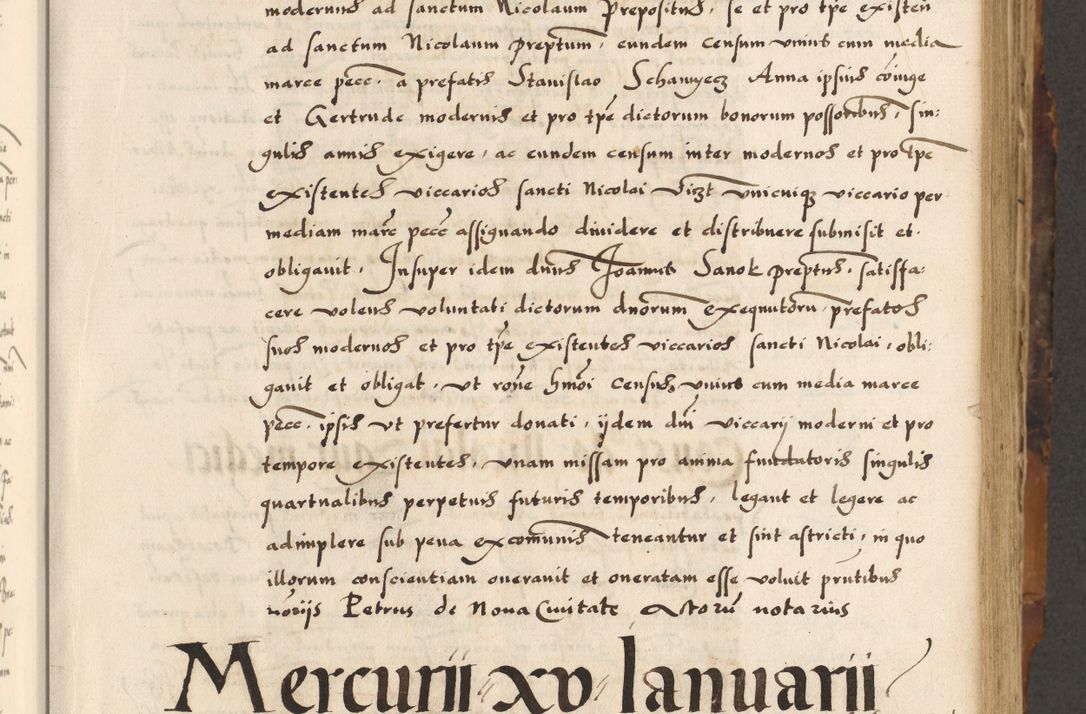 modernus ad sanctum Nicolaum Prepositus, se et pro tpe existen
ad sanctum Nicolaum preptum, eundem censum unius cum media
marce pecc. a prefatis Stanislao Schamyecz Anna ipsius coiuge
et Gertrude modernis et pro tpe dictorum bonorum possoribus, sin:
gulis annis exigere, ac eundem censum inter modernos et pro tpe
existentes viccarios sancti Nicolai Vizt unicuiqz viccario per
mediam marc pecc assignando dividere et distribuere submisit et
obligavit. Insuper idem dnus Joannes Sanok preptus, satisffa:
cere volens voluntati dictorum dnorum exequutoru prefatos
suos modernos et pro tpe existentes viccarios sancti Nicolai, obli:
gavit et obligat, ut rone hmoi census unius cum media marce
pecc. ipsis ut prefertur donati, ijdem dni viccarij moderni et pro
tempore existentes, unam missam pro anima fundatoris singulis
quartualibus perpetuis futuris temporibus, legant et legere ac
adimplere sub pena excomunis teneantur et sint astricti, in quo
illorum conscientiam oneravit et oneratam esse voluit pntibus
Petrus de Nova Civitate Actoru notarius
Mercurii xv Ianuarii